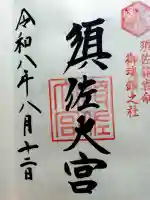 須佐之男命
御魂鎮之社
須佐大宮
令和八年八月十二日